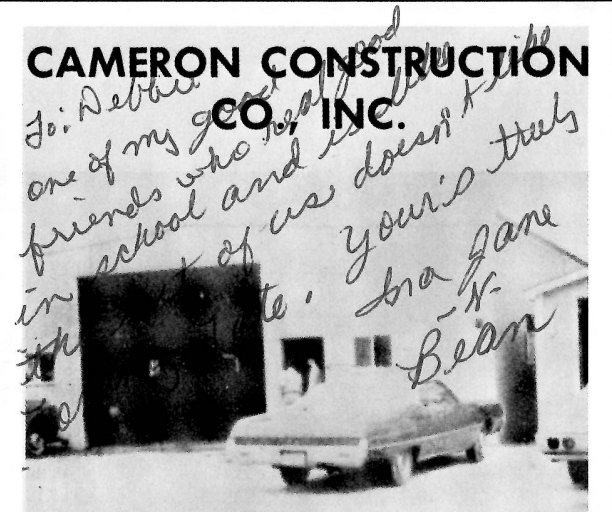 CAMERON CONSTRUCTION
CO., INC.
To: Debbie
one of my good
friends who real good
in school and is
the of us doesn't like
te. Your's truly
Ina Jane
-N-
Bean